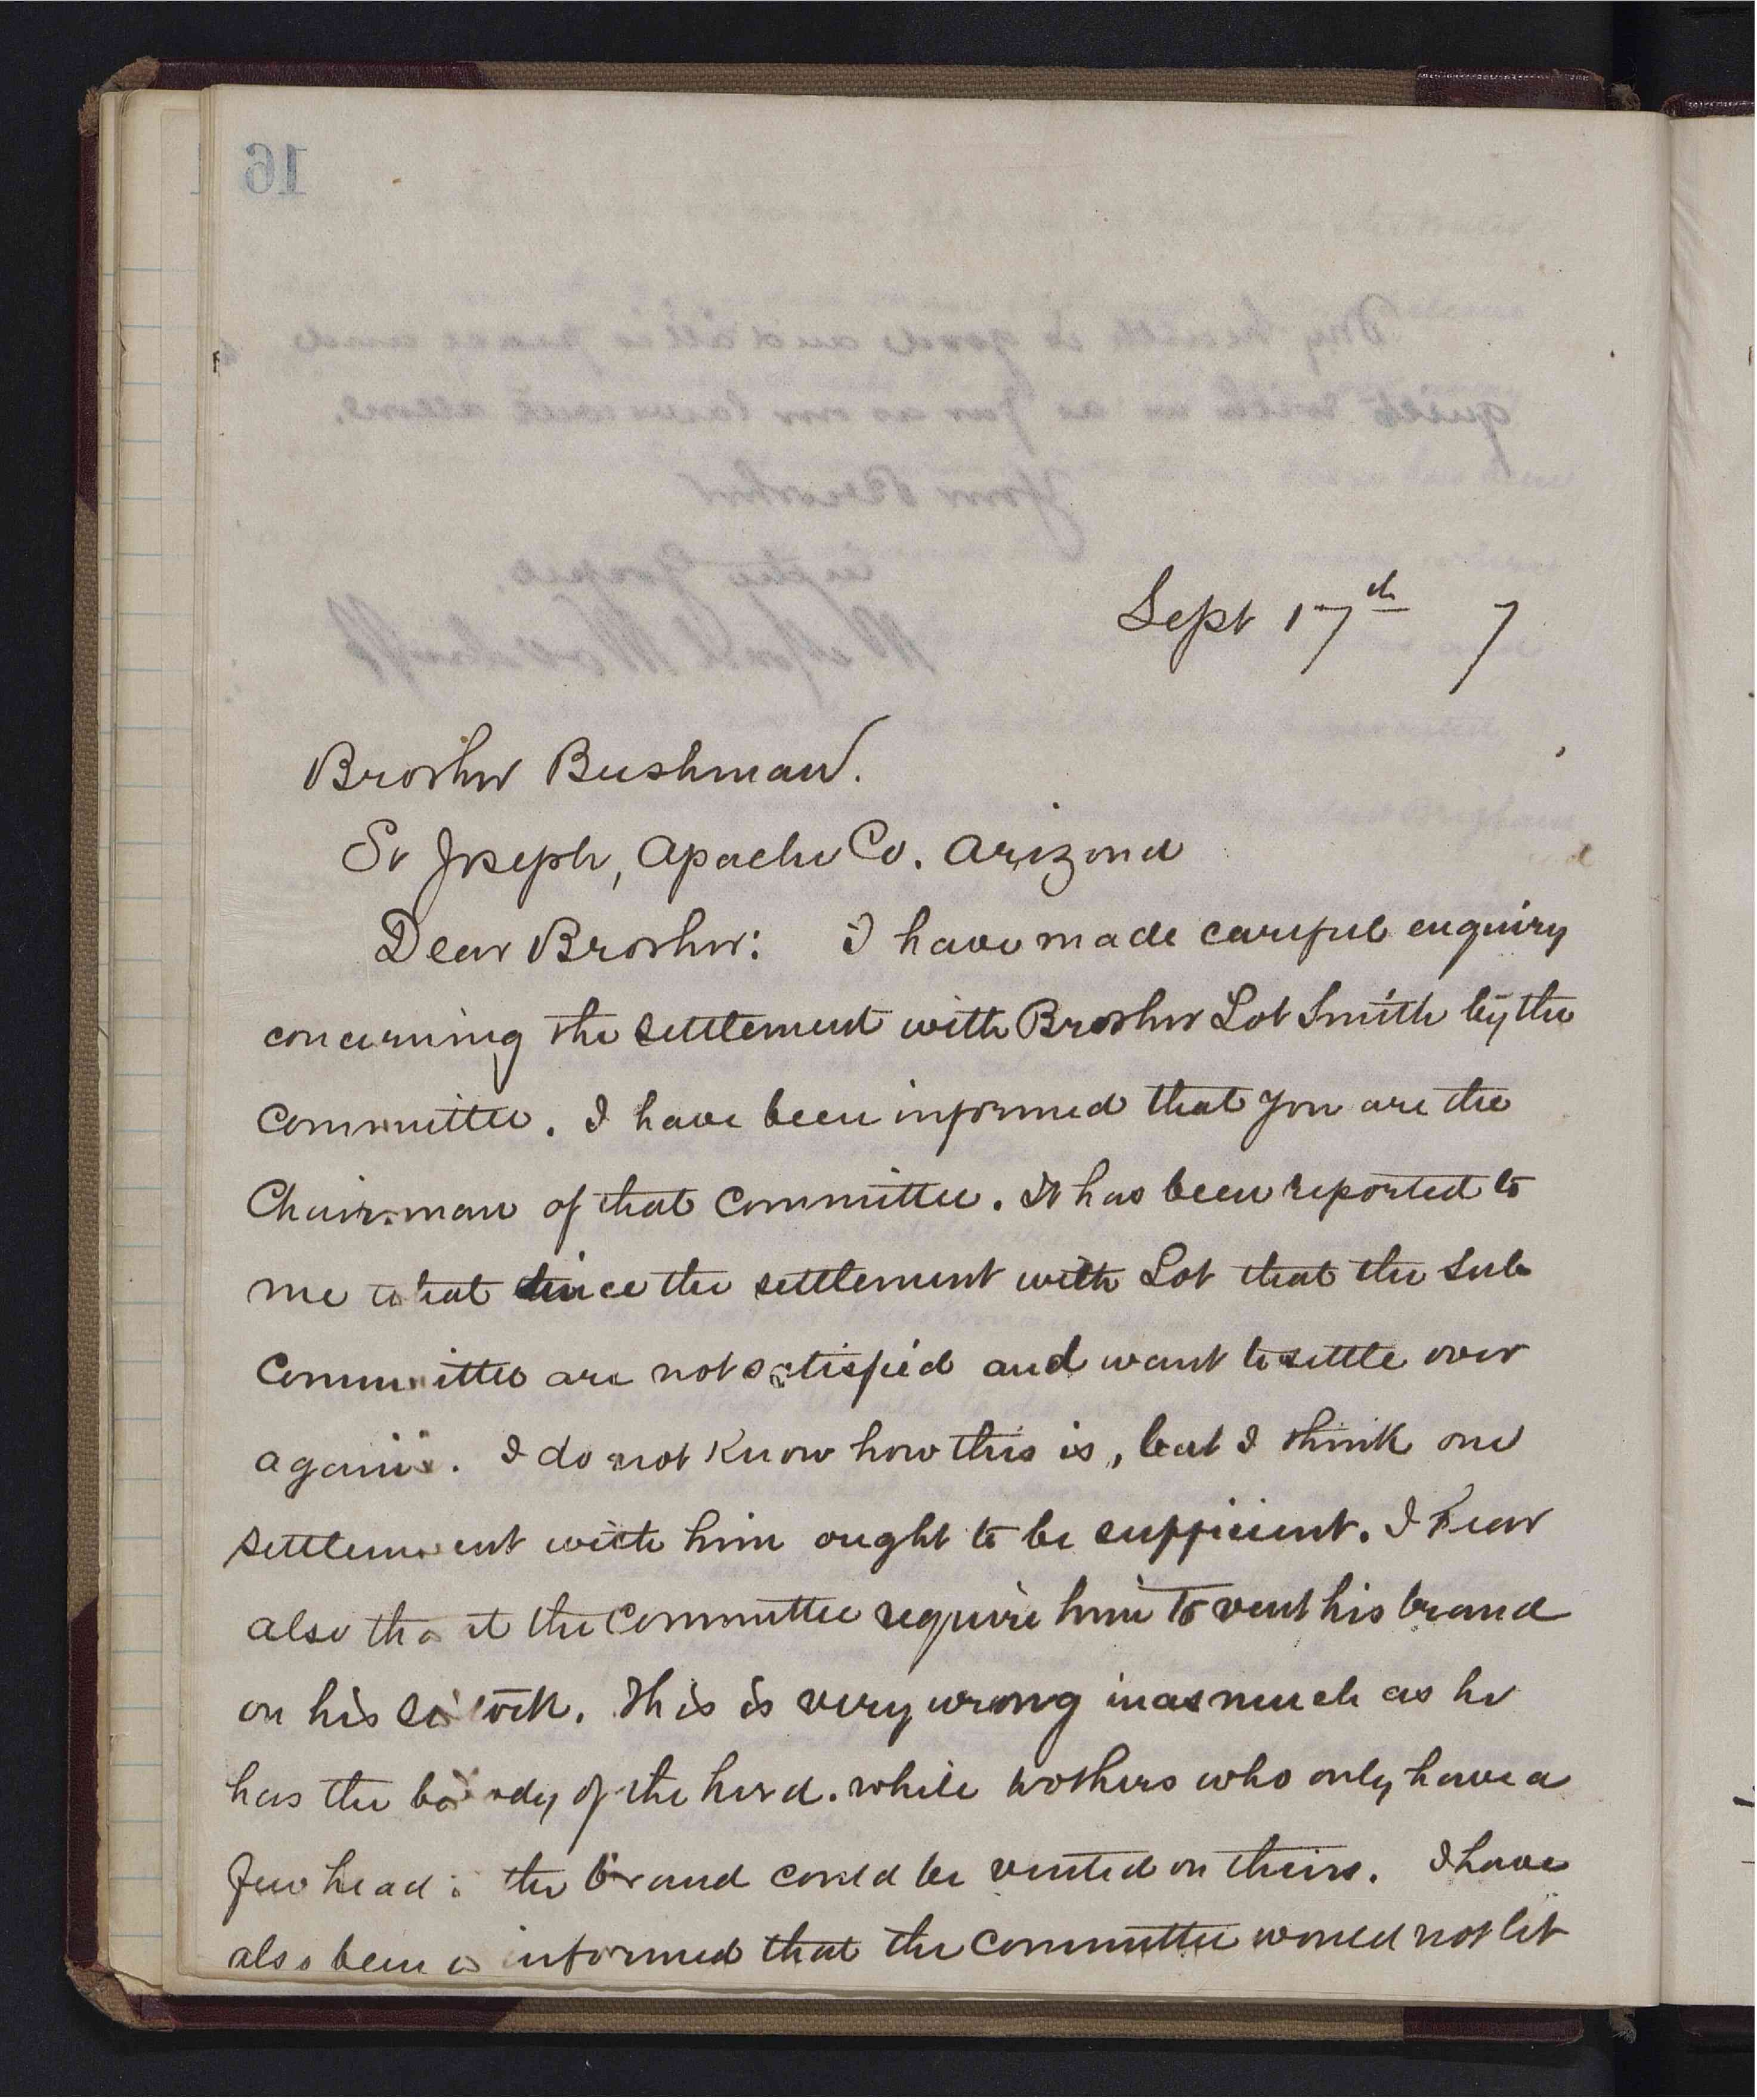 16
Sept 17th 7
Brother Bushman.
St Joseph, Apache Co. Arizona
Dear Brother: I have made careful enquiry
concerning the settlement with Brother Lot Smith by the
committee. I have been informed that you are the
Chairman of that Committee. It has been reported to
me that since the settlement with Lot that the Sub
Committee are not satisfied and want to settle over
again. I do not know how this is, but I think one
settlement with him ought to be sufficient. I Fear
also that the Committee require him to vent his brand
on his stock. This is very wrong inasmuch as he
has the body of the herd. while others who only have a
few head; the brand could be vented on theirs. I have
also been informed that the Committee would not let